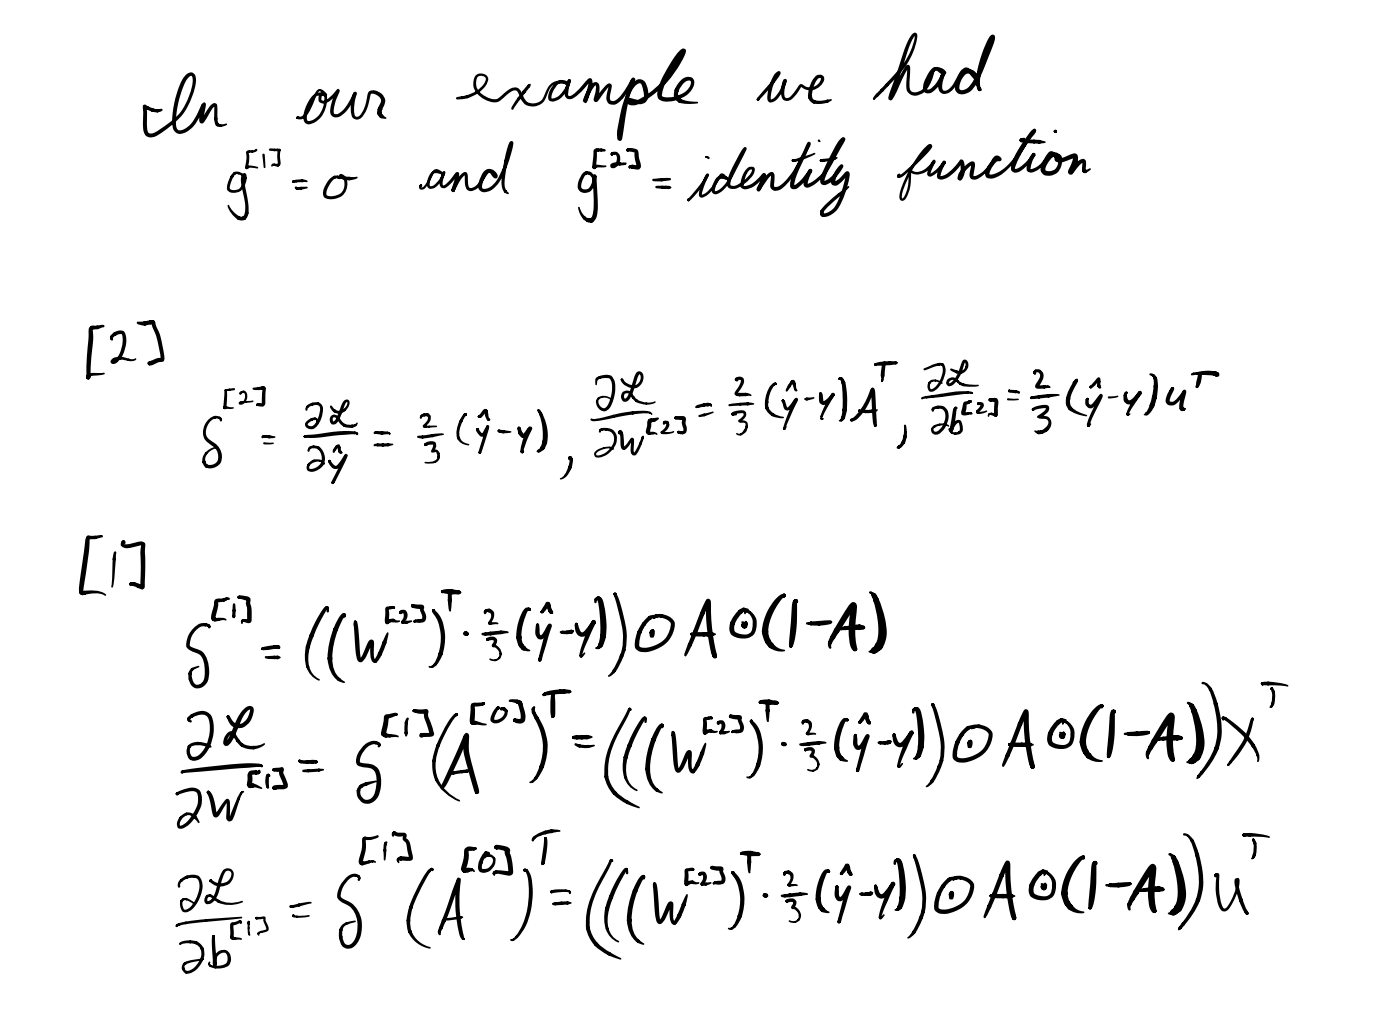 In our example we had
g^[1] = σ and g^[2] = identity function
[2]
δ^[2] = ∂ℒ/∂ŷ = 2/3 (ŷ-y), ∂ℒ/∂W^[2] = 2/3 (ŷ-y)A^T, ∂ℒ/∂b^[2] = 2/3 (ŷ-y)u^T
[1]
δ^[1] = ((W^[2])^T · 2/3 (ŷ-y)) ⊙ A ⊙ (1-A)
∂ℒ/∂W^[1] = δ^[1] (A^[0])^T = (((W^[2])^T · 2/3 (ŷ-y)) ⊙ A ⊙ (1-A)) X^T
∂ℒ/∂b^[1] = δ^[1] (A^[0])^T = (((W^[2])^T · 2/3 (ŷ-y)) ⊙ A ⊙ (1-A)) u^T